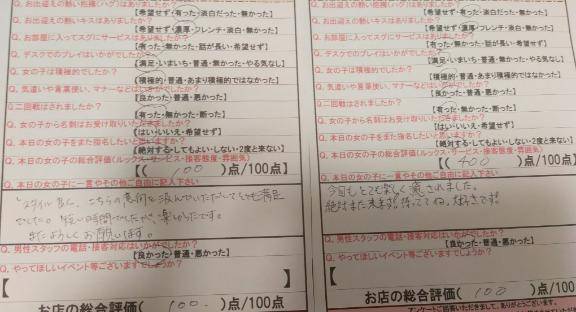 Q. お出迎えの熱い抱擁(ハグ)はありましたか?
【希望せず・有った・淡白だった・無かった】
Q. お出迎えの熱いキスはありましたか?
【希望せず・濃厚・フレンチ・淡白・無かった】
Q. お部屋に入ってスグにサービスありましたか?
【有った・無かった・話が長い・希望せず】
Q. デスクでのプレイはいかがでしたか?
【満足・いまいち・普通・無かった・やる気なし】
Q. 女の子は積極的でしたか?
【積極的・普通・あまり積極的ではなかった】
Q. 気遣いや言葉使い、マナーなどはいかがでしたか?
【良かった・普通・悪かった】
Q 二回戦はされましたか?
【有った・無かった・断った】
Q. 女の子から名刺はお受け取りいただけましたか?
【はい・いいえ・希望せず】
Q. 本日の女の子をまた指名したいと思いますか?
【絶対する・してもよい・しない・2度と来ない】
Q. 本日の女の子の総合評価(ルックス・サービス・接客態度・雰囲気)
【( 100 )点/100点】
Q. 本日の女の子に一言やその他ご自由に記入下さい
でした。短い時間でしたが、楽しかったです。
またよろしくお願いします。
Q. 男性スタッフの電話・接客対応はいかがでしたか?
【良かった・普通・悪かった】
Q. やってほしいイベント等ございますでしょうか?
【 】
お店の総合評価( 100 )点/100点
Q. お出迎えの熱い抱擁(ハグ)はありましたか?
【希望せず・有った・淡白だった・無かった】
Q. お出迎えの熱いキスはありましたか?
【希望せず・濃厚・フレンチ・淡白・無かった】
Q. お部屋に入ってスグにサービスありましたか?
【有った・無かった・話が長い・希望せず】
Q. デスクでのプレイはいかがでしたか?
【満足・いまいち・普通・無かった・やる気なし】
Q. 女の子は積極的でしたか?
【積極的・普通・あまり積極的ではなかった】
Q. 気遣いや言葉使い、マナーなどはいかがでしたか?
【良かった・普通・悪かった】
Q 二回戦はされましたか?
【有った・無かった・断った】
Q. 女の子から名刺はお受け取りいただけましたか?
【はい・いいえ・希望せず】
Q. 本日の女の子をまた指名したいと思いますか?
【絶対する・してもよい・しない・2度と来ない】
Q. 本日の女の子の総合評価(ルックス・サービス・接客態度・雰囲気)
【( 400 )点/100点】
Q. 本日の女の子に一言やその他ご自由に記入下さい
今回もとても楽しく癒されました。
絶対また来ます。待っててね。大好きです。
Q. 男性スタッフの電話・接客対応はいかがでしたか?
【良かった・普通・悪かった】
Q. やってほしいイベント等ございますでしょうか?
【 】
お店の総合評価( 100 )点/100点
アンケートご回答いただきまして、ありがとうございます。